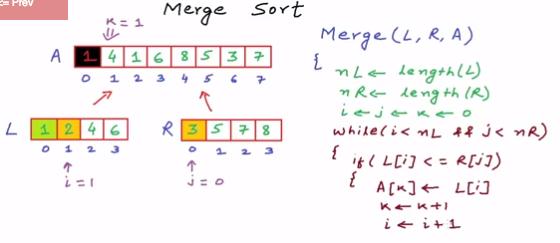 <= Prev
Merge Sort
K = 1
A 1 4 1 6 8 5 3 7
0 1 2 3 4 5 6 7
L 1 2 4 6
0 1 2 3
i = 1
R 3 5 7 8
0 1 2 3
j = 0
Merge(L, R, A)
{
nL ← length(L)
nR ← length(R)
i ← j ← K ← 0
while(i < nL && j < nR)
{ if( L[i] <= R[j])
{ A[K] ← L[i]
K ← K+1
i ← i+1